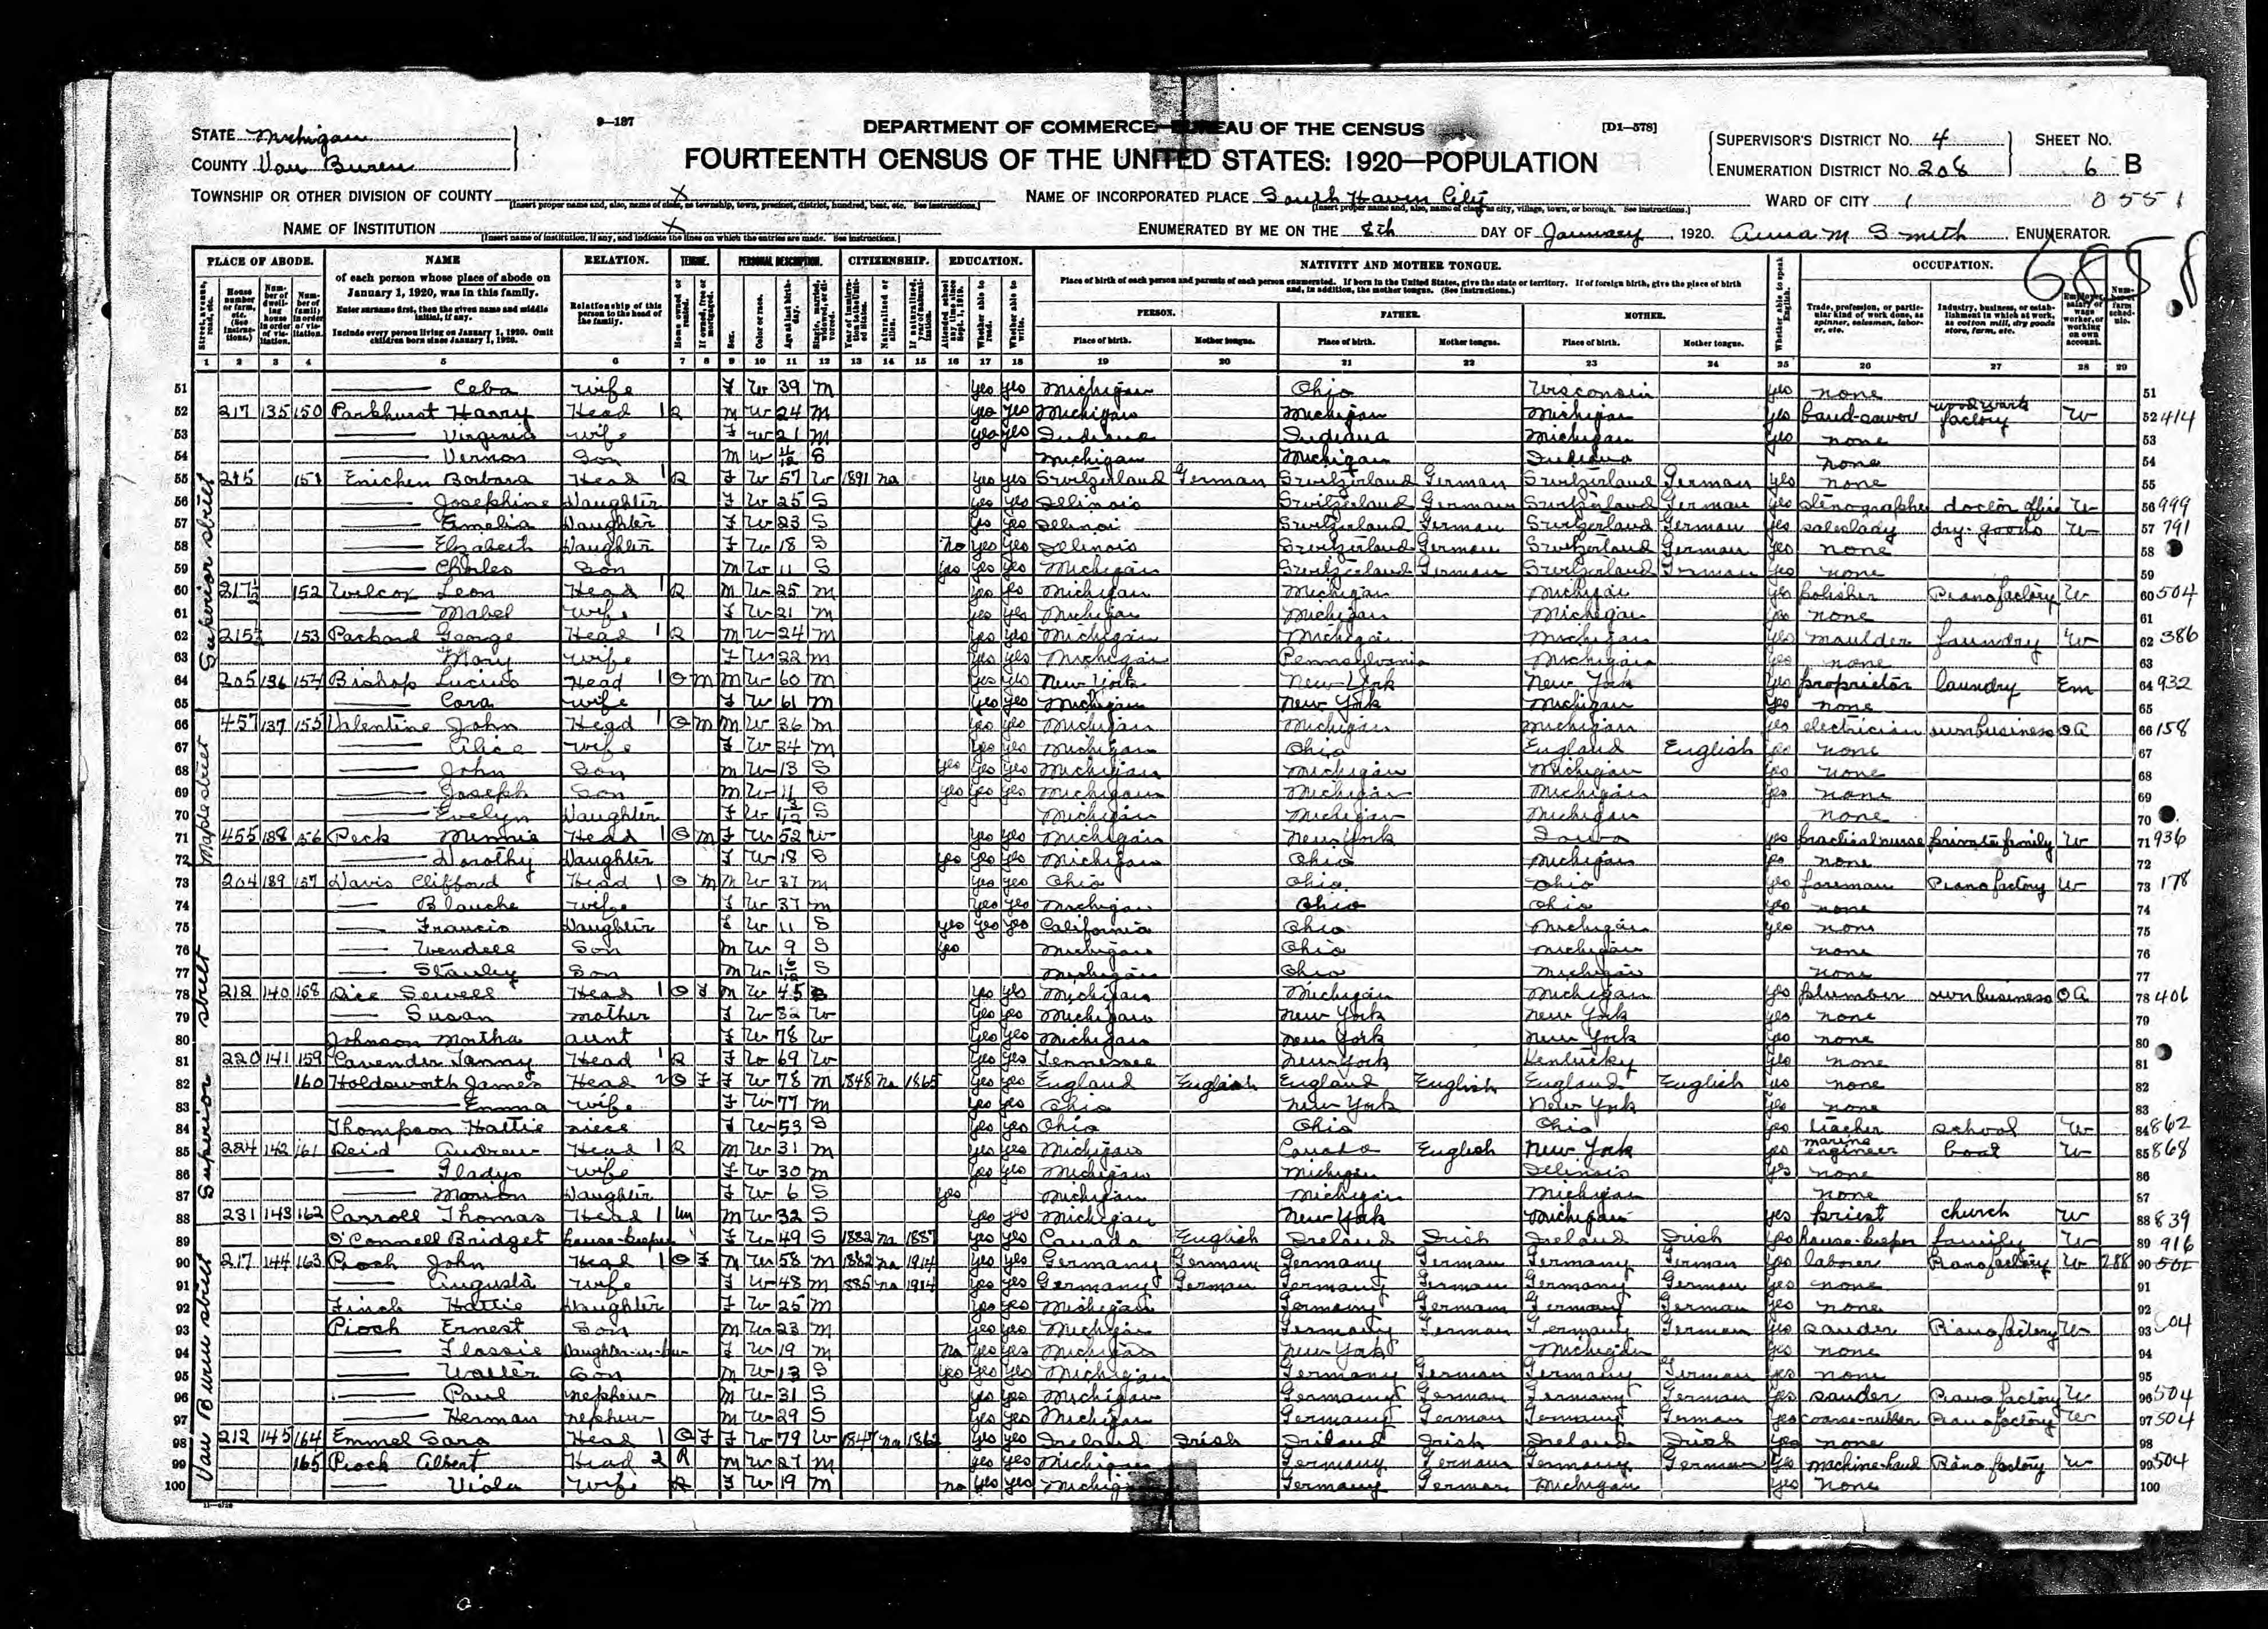 9—187
DEPARTMENT OF COMMERCE—BUREAU OF THE CENSUS
[D1—578]
STATE Michigan
COUNTY Van Buren
FOURTEENTH CENSUS OF THE UNITED STATES: 1920—POPULATION
SUPERVISOR'S DISTRICT No. 4
ENUMERATION DISTRICT No. 208
SHEET No. 6 B
TOWNSHIP OR OTHER DIVISION OF COUNTY X
NAME OF INCORPORATED PLACE South Haven City
WARD OF CITY 1
0551
NAME OF INSTITUTION X
[Insert name of institution, if any, and indicate the lines on which the entries are made. See instructions.]
ENUMERATED BY ME ON THE 8th DAY OF January, 1920. Anna M Smith ENUMERATOR.
6858
PLACE OF ABODE. NAME RELATION. TENURE. PERSONAL DESCRIPTION. CITIZENSHIP. EDUCATION. NATIVITY AND MOTHER TONGUE. OCCUPATION.
of each person whose place of abode on January 1, 1920, was in this family.
Enter surname first, then the given name and middle initial, if any.
Include every person living on January 1, 1920. Omit children born since January 1, 1920.
Relationship of this person to the head of the family.
Place of birth of each person and parents of each person enumerated. If born in the United States, give the state or territory. If of foreign birth, give the place of birth and, in addition, the mother tongue. (See instructions.)
PERSON. FATHER. MOTHER.
Place of birth. Mother tongue. Place of birth. Mother tongue. Place of birth. Mother tongue.
Trade, profession, or particular kind of work done, as spinner, salesman, laborer, etc.
Industry, business, or establishment in which at work, as cotton mill, dry goods store, farm, etc.
1 2 3 4 5 6 7 8 9 10 11 12 13 14 15 16 17 18 19 20 21 22 23 24 25 26 27 28 29
51 — Ceba wife F W 39 M yes yes Michigan Ohio Wisconsin yes none 51
52 217 135 150 Parkhurst Harry Head 1 R M W 24 M yes yes Michigan Michigan Michigan yes band-sawer factory W 52 414
53 — Virginia wife F W 21 M yes yes Indiana Indiana Michigan yes none 53
54 — Vernon Son M W 11/12 S Michigan Michigan Indiana none 54
55 215 151 Enichen Barbara Head 1 R F W 57 W 1891 na yes yes Switzerland German Switzerland German Switzerland German yes none 55
56 — Josephine Daughter F W 25 S yes yes Illinois Switzerland German Switzerland German yes stenographer doctor office W 56 999
57 — Amelia Daughter F W 23 S yes yes Illinoi Switzerland German Switzerland German yes saleslady dry-goods W 57 791
58 — Elizabeth Daughter F W 18 S no yes yes Illinois Switzerland German Switzerland German yes none 58
59 — Charles Son M W 11 S yes yes yes Michigan Switzerland German Switzerland German yes none 59
60 217½ 152 Wilcox Leon Head 1 R M W 25 M yes yes Michigan Michigan Michigan yes polisher Piano factory W 60 504
61 — Mabel wife F W 21 M yes yes Michigan Michigan Michigan yes none 61
62 215½ 153 Packard George Head 1 R M W 24 M yes yes Michigan Michigan Michigan yes moulder foundry W 62 386
63 Mary wife F W 22 M yes yes Michigan Pennsylvania Michigan yes none 63
64 205 136 154 Bishop Lucius Head 1 O M M W 60 M yes yes New York New York New York yes proprietor laundry Em 64 932
65 — Cora wife F W 61 M yes yes Michigan New York Michigan yes none 65
66 457 137 155 Valentine John Head 1 O M M W 36 M yes yes Michigan Michigan Michigan yes electrician own business OA 66 158
67 — Alice wife F W 34 M yes yes Michigan Ohio England English yes none 67
68 — John Son M W 13 S yes yes yes Michigan Michigan Michigan yes none 68
69 — Joseph Son M W 11 S yes yes yes Michigan Michigan Michigan yes none 69
70 — Evelyn Daughter F W 1 3/12 S Michigan Michigan Michigan none 70
71 455 138 156 Peck Minnie Head 1 O M F W 52 W yes yes Michigan New York Iowa yes practical nurse private family W 71 936
72 — Dorothy Daughter F W 18 S yes yes yes Michigan Ohio Michigan yes none 72
73 204 139 157 Davis Clifford Head 1 O M M W 37 M yes yes Ohio Ohio Ohio yes foreman Piano factory W 73 178
74 — Blanche wife F W 37 M yes yes Michigan Ohio Ohio yes none 74
75 — Francis Daughter F W 11 S yes yes yes California Ohio Michigan yes none 75
76 — Wendell Son M W 9 S yes Michigan Ohio Michigan none 76
77 — Stanley Son M W 1 6/12 S Michigan Ohio Michigan none 77
78 212 140 158 Dice Sewell Head 1 O F M W 45 yes yes Michigan Michigan Michigan yes plumber own business OA 78 406
79 — Susan mother F W 82 W yes yes Michigan New York New York yes none 79
80 Johnson Martha aunt F W 78 W yes yes Michigan New York New York yes none 80
81 220 141 159 Cavender Fanny Head 1 R F W 69 W yes yes Tennessee New York Kentucky yes none 81
82 160 Holdsworth James Head 2 O F F W 78 M 1848 Na 1865 yes yes England English England English England English yes none 82
83 — Emma wife F W 77 M yes yes Ohio New York New York yes none 83
84 Thompson Hattie niece F W 53 S yes yes Ohio Ohio Ohio yes teacher school W 84 862
85 224 142 161 Reid Andrew Head 1 R M W 31 M yes yes Michigan Canada English New York yes marine engineer boat W 85 868
86 — Gladys wife F W 30 M yes yes Michigan Michigan Illinois yes none 86
87 — Marion Daughter F W 6 S yes Michigan Michigan Michigan none 57
88 231 143 162 Carroll Thomas Head 1 Un M W 32 S yes yes Michigan New York Michigan yes priest church W 88 839
89 O'Connell Bridget house-keeper F W 49 S 1882 na 1887 yes yes Canada English Ireland Irish Ireland Irish yes house-keeper family W 89 916
90 217 144 163 Pioch John Head 1 O F M W 58 M 1882 na 1914 yes yes Germany German Germany German Germany German yes laborer Piano factory W 288 90 501
91 — Augusta wife F W 48 M 1885 na 1914 yes yes Germany German Germany German Germany German yes none 91
92 Finch Hattie Daughter F W 25 M yes yes Michigan Germany German Germany German yes none 92
93 Pioch Ernest Son M W 23 M yes yes Michigan Germany German Germany German yes sander Piano factory W 93 504
94 — Flossie Daughter-in-law F W 19 M no yes yes Michigan New York Michigan yes none 94
95 — Walter Son M W 13 S yes yes yes Michigan Germany German Germany German yes none 95
96 — Paul nephew M W 31 S yes yes Michigan Germany German Germany German yes sander Piano factory W 96 504
97 — Herman nephew M W 29 S yes yes Michigan Germany German Germany German yes coarse-rubber Piano factory W 97 504
98 212 145 164 Emmel Sara Head 1 O F F W 79 W 1847 na yes yes Ireland Irish Ireland Irish Ireland Irish yes none 98
99 165 Pioch Albert Head 2 R M W 27 M yes yes Michigan Germany German Germany German yes machine-hand Piano factory W 99 504
100 — Viola wife R F W 19 M no yes yes Michigan Germany German Michigan yes none 100
Superior street
Maple street
Superior street
Van Buren street